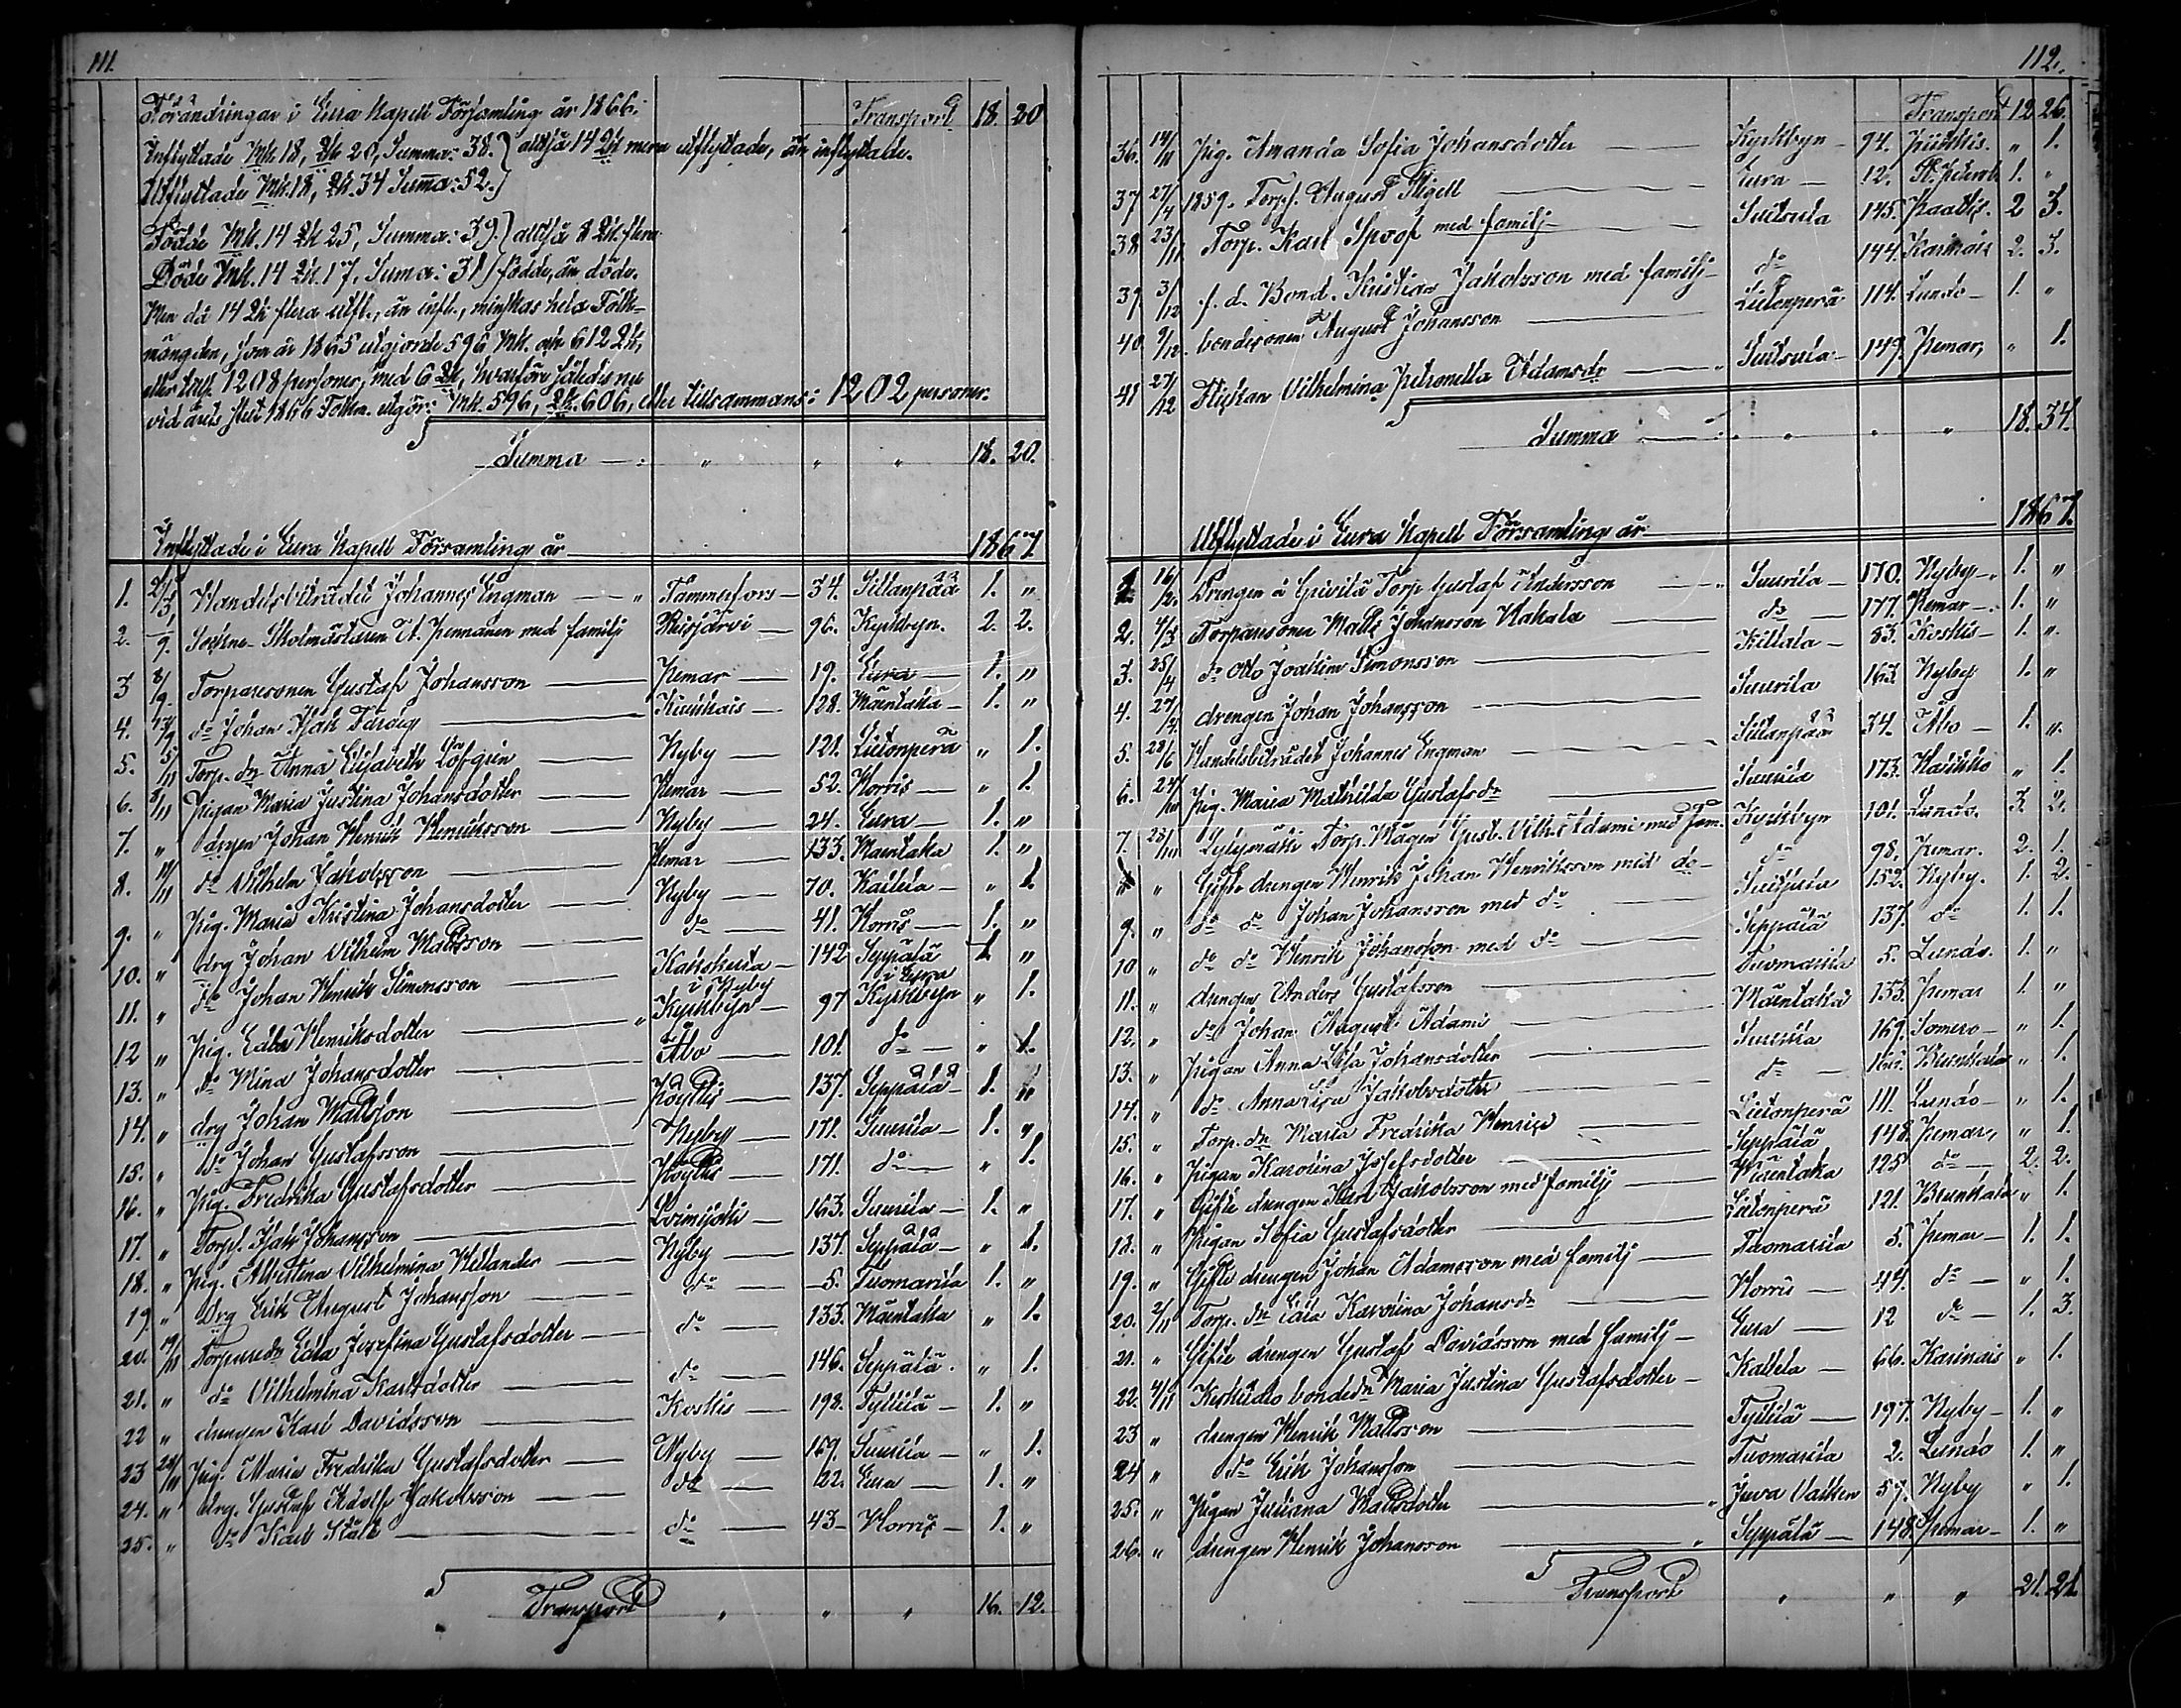 111.
Förändringar i Eura Kapell Församling år 1866. Transport 18. 20
Inflyttade Mk. 18, Qk. 20, Summa: 38. } alltså 14 Qk mera utflyttade, än inflyttade.
Utflyttade Mk. 18, Qk. 34 Summa: 52.
Födde Mk. 14 Qk 25, Summa: 39. } alltså 8 Qk. flera
Döde Mk. 14 Qk. 17, Suma: 31 } födde, än döde.
Men då 14 Qk flera utfl., än infl., minskas hela Folk-
mängden, som år 1865 utgjorde 596 Mk. och 612 Qk,
eller 1208 personer, med 6 Qk, hvarföre således nu
vid årets slut 1866 Folkm. utgör: Mk. 596, Qk. 606, eller tillsammans: 1202 personer.
Summa — : " " " 18. 20.
Inflyttade i Eura Kapell Församling år 1867
1. Handelsbiträdet Johannes Engman — " Tammerfors — 34. Sillanpää 1. "
2. 1/9. Sockne-Skolmästaren A. Pennanen med familj — 96. Kyrkbyn. 2. 2.
3 8/9. Torparesonen Gustaf Johansson — Pemar — 19. Eura — 1. "
4. do Johan Isak Färdig — 128. Mäentaka — 1. "
5. 5/11 Torp. dr Anna Elisabeth Löfgrén — Nyby — 121. Lietonperä " 1.
6. 8/11 Pigan Maria Justina Johansdotter — Pemar — 52. Horris — " 1.
7. " drgen Johan Henrik Henriksson — Nyby — 24. Eura — 1. "
8. 11/11 do Vilhelm Jakobsson — Pemar — 133. Mäentaka 1. "
9. " Pig. Maria Kristina Johansdotter — Nyby — 70. Kaitila — " 1.
10. " drg Johan Vilhelm Mattsson — do — 41. Horris — 1. "
11. " do Johan Henrik Simonsson — i Nyby 142 Seppälä 1. "
12 " Pig. Edla Henriksdotter — " Kyrkbyn — 97 Kyrkbyn " 1.
13. " do Mina Johansdotter — Åbo — 101. do — " 1.
14. " drg Johan Mattsson — Pöytis — 137. Seppälä — 1. "
15. " do Johan Gustafsson — Nyby — 171. Suurila — 1. "
16. " Pig. Fredrika Gustafsdotter — Pöytis — 171. do — " 1.
17. " Torpf. Isak Johansson — Loimijoki — 163. Suurila — 1. "
18. " Pig. Albertina Vilhelmina Hellander — Nyby — 137. Seppälä — " 1.
19. " Drg Erik August Johansson — do — 5. Tuomarila 1. "
20. 19/11 Torparedr Edla Josefina Gustafsdotter — do — 133. Mäentaka " 1.
21. " do Vilhelmina Karlsdotter — do — 146. Seppälä. " 1.
22 " drengen Karl Davidsson — Koskis — 198. 1. "
23 Pig. Maria Fredrika Gustafsdotter — Nyby — 169. Suurila — " 1.
24. " drg. Gustaf Adolf Jakobsson — do — 22. Eura — 1. "
25. " do Karl Ståhl — do — 43 — Horris — 1. "
Transport " " " 16. 12.
112.
Transport 12 26.
36. 14/11 Pig. Amanda Sofia Johansdotter — Kyrkbyn — 94. " 1.
37 27/4 1859. Torpf. August Fligell — Eura — 12. St. Petersb. 1. "
38 23/11 Torp. Karl Spoof med familj — 145. 2 3.
39. 3/12 f. d. Bond. Kristian Jakobsson med familj — do 144. Karinais 2. 3.
40. 9/12. bondesonen August Johansson — Lietonperä 114. Lundo — 1. "
41 27/12 Flickan Vilhelmina Petronella Adamsdr — 149. Pemar, " 1.
Summa — : " " " 18. 34.
Utflyttade i Eura Kapell Församling år 1867.
1. 16/2. Drengen å Torp Gustaf Andersson — Suurila — 170. Nyby — 1. "
2. 4/3 Torparesonen Matts Johansson Hakala — do — 177. Pemar — 1. "
3. 25/4 do Otto Joakim Simonsson — 83. Koskis — 1. "
4. 27/4. drengen Johan Johansson — Suurila 163. Nyby 1. "
5. 28/6 Handelsbiträdet Johannes Engman — Sillanpää 34. Åbo — 1. "
6. 24/10 Pig. Maria Mathilda Gustafsdr — Suurila 173. " 1.
7. 28/10 Torp. Mågen Gust. Vilh. Adami med fam. Kyrkbyn 101. Lundo. 3. 2.
" Gifte drengen Henrik Johan Henriksson med do — do 98. Pemar. 2. 1.
9. " do do Johan Johansson med do — 152. Nyby. 1. 2.
10 " do do Henrik Johansson med do — Seppälä 137. do 1. 1.
11. " drengen Anders Gustafsson — Tuomarila 5. Lundo. 1. "
12. " do Johan August Adami — Mäentaka 133. Pemar 1. "
13. " Pigan Anna Lisa Johansdotter — Suurila 169. Somero — " 1.
14. " do Anna Lisa Jakobsdotter — do — " 1.
15. " Torp. dr Maria Fredrika Henrics — Lietonperä 111. Lundo — " 1.
16. " Pigan Karolina Josefsdotter — Seppälä 148. Pemar, " 1.
17. " Gifte drengen Karl Jakobsson med familj — Mäentaka 125 do — 2. 2.
18. " Pigan Sofia Gustafsdotter — Lietonperä 121. " 1.
19. " Gifte drengen Johan Adamsson med familj — Tuomarila 5. Pemar — 1. 1.
20. 2/11 Torp. dr Edla Karolina Johansdr — Horris — 44. do — " 1.
21. " Gifte drengen Gustaf Davidsson med familj — Eura — 12 do — 1. 3.
22. 4/11 bondedr Maria Justina Gustafsdotter — Kaitila — 66. Karinais " 1.
23 " drengen Henrik Mattsson — 197. Nyby — 1. "
24 " do Erik Johansson — Tuomarila 2. Lundo 1. "
25. " Pigan Juliana Mattsdotter — 57. Nyby " 1.
26. " drengen Henrik Johansson — " Seppälä — 148. Pemar — 1. "
Transport " " " 21. 21.